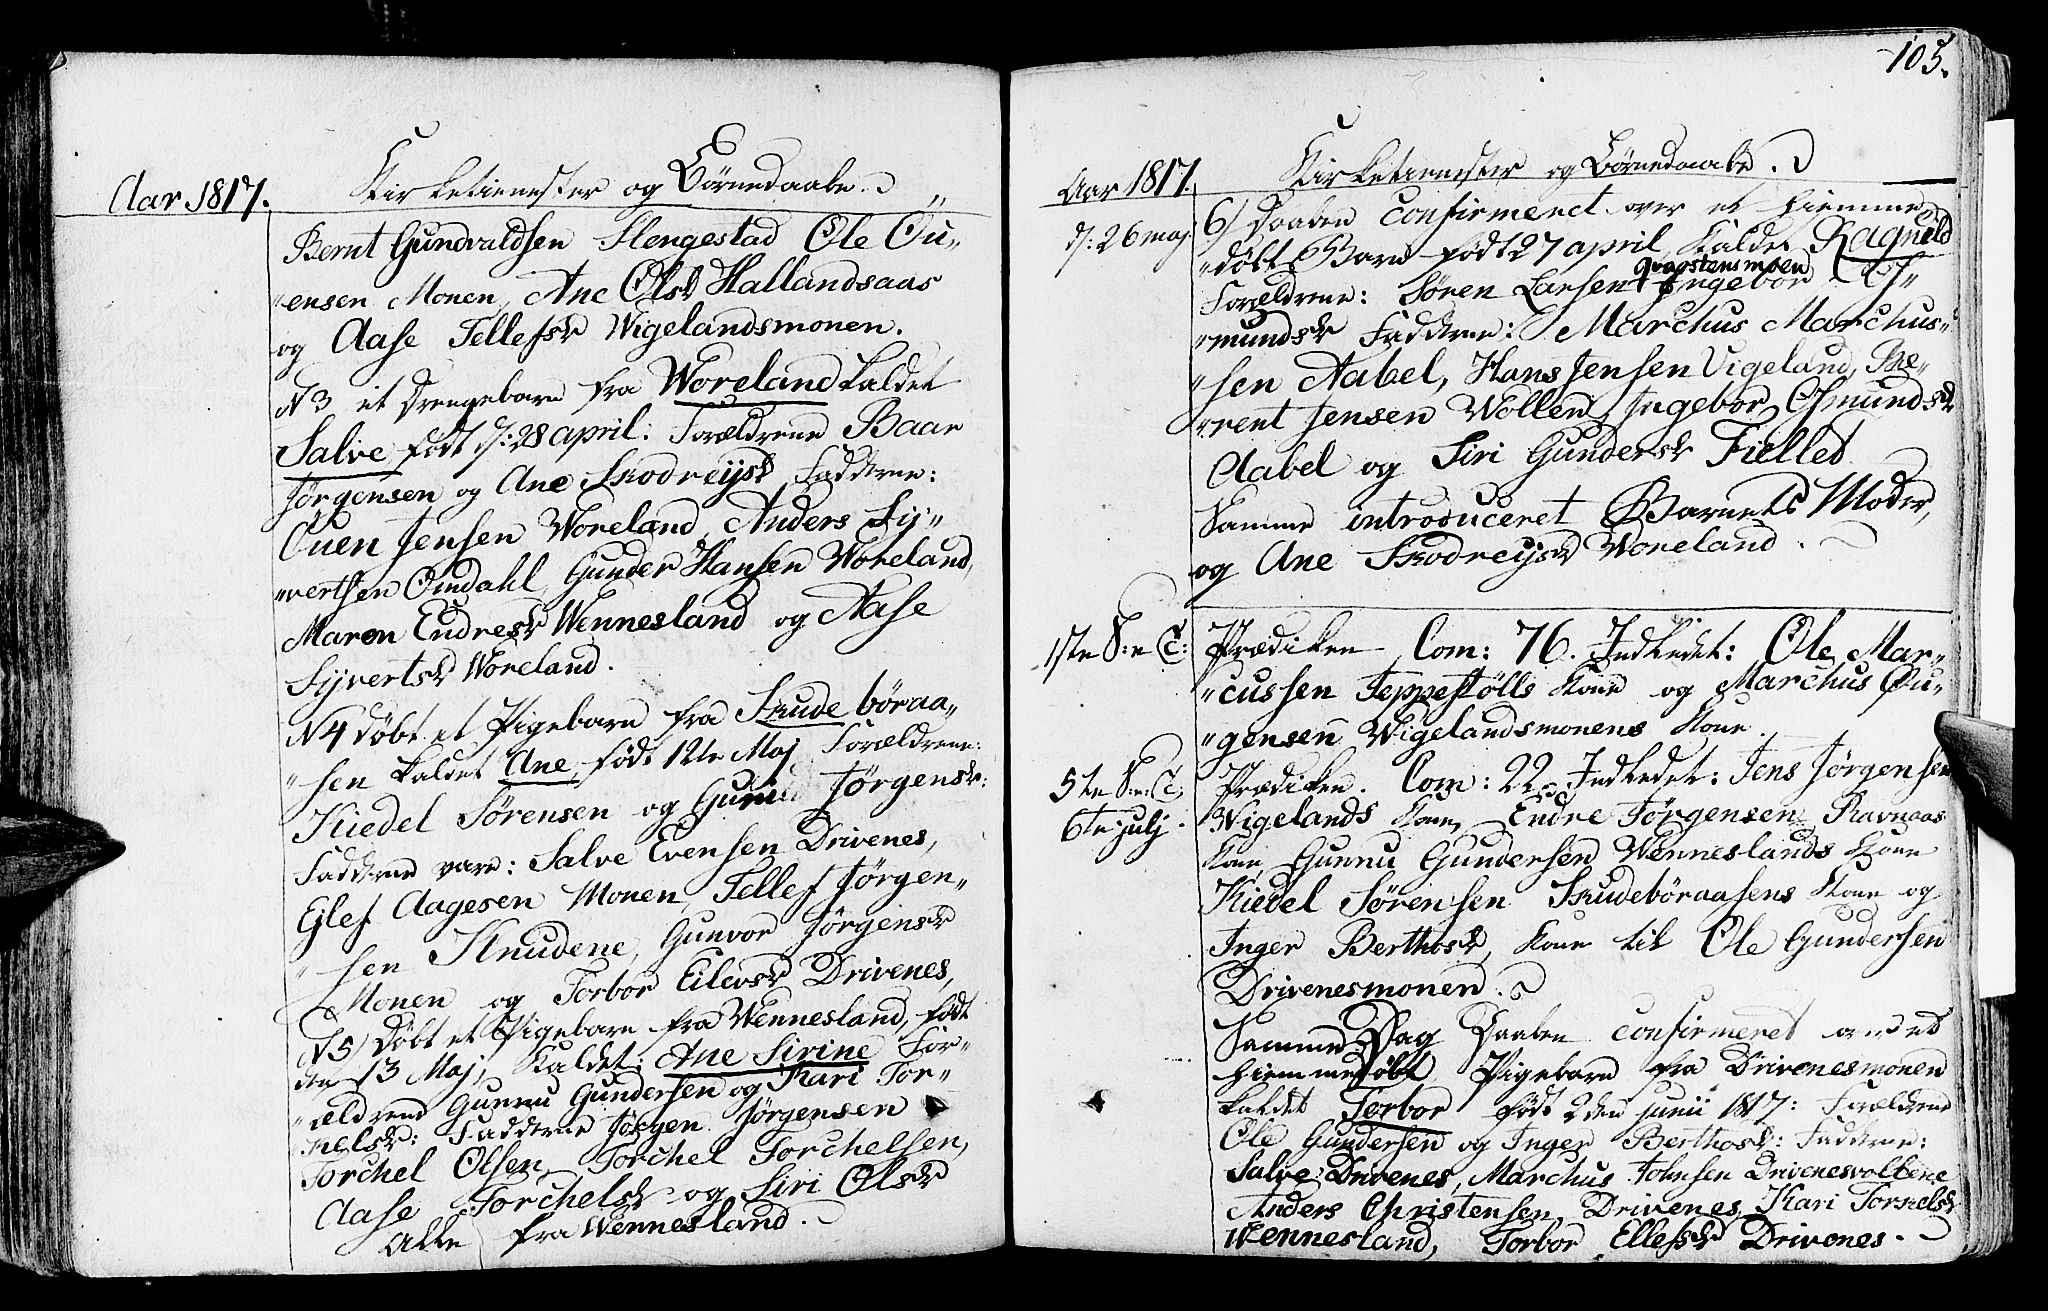 Aar 1817.
Kirketienester og Börnedaabe.
Bernt Gundvaldsen Slengestad Ole Ou„
„ensen Monen, Ane Olsd Hallandsaas
og Aase Tellefsd Wigelandsmonen.
N3 et Drengebarn fra Woreland kaldet
Salve født d: 28 april. Forældrene Baar
Jörgensen og Ane Skodreijsd Fadderne:
Ouen Jensen Woreland, Anders Sij„
„vertsen Omdahl, Gunder Hansen Woreland,
Maren Endresd Wennesland og Aase
Sijvertsd Woreland.
N4 døbt et Pigebarn fra Skudeböraa„
„sen kaldet Ane født 12te Maj Forældrene:
Kiedel Sörensen og Jörgensd:
Fadderne vare: Salve Evensen Drivenes,
Ejlef Aagesen Monen, Tellef Jörgen„
„sen Knudene, Gunvor Jörgensd
Monen og Torbor Eilevsd Drivenes,
N5) Døbt et Pigebarn fra Wennesland, født
den 13 Maj, Kaldet: Ane Sirine For„
„ældrene Gunnu Gundersen og Kari Tor„
kelsd: Fadderne Jörgen Jörgensen
Torchel Olsen, Torchel Torchelsen,
Aase Torchelsd og Siri Olsd
alle fra Wennesland.
105.
Aar 1817.
Kirketienester og Börnedaabe.
d: 26 maj
6) Daaben confirmeret over et hiemme
„døbt Barn født 27 april, kaldet Ragnild
Forældrene: Sören Larsen Qvastensmoen Ingebor Os„
„mundsd Fadderne: Marchus Marchus„
„sen Aabel, Hans Jensen Vigeland, Be„
„rent Jensen Wollen, Ingebor Osmundsd
Aabel og Siri Gundersd Fiellet
Samme introduceret Barnets Moder,
og Ane Skodreijsd Woreland.
1ste S: e T:
Prædiken Com: 76. Indledet: Ole Mar„
„cussen Jeppestölls Kone og Marchus Ou„
„gensen Wigelandsmonens Kone.
5te S: e: T:
6te julj.
Prædiken. Com: 22. Indledet: Jens Jörgensen
Wigelands Kone, Endre Jörgensen Ravnaas
Kone, Gunnu Gundersen Wenneslands Kone
Kiedel Sörensen Skudeböraasens Kone og
Inger Berthosd, Kone til Ole Gundersen
Drivenesmonen.
Samme Dag Daaben confirmeret over et
hiemmedøbt Pigebarn fra Drivenesmonen
kaldet Torbor født 2den junii 1817: Forældrene
Ole Gundersen og Inger Berthosd: Fadderne:
Salve Drivenes, Marchus Johnsen Drivenesvollene
Anders Christensen Drivenes, Kari Torkelsd
Wennesland, Torbor Ellefsd Drivenes.